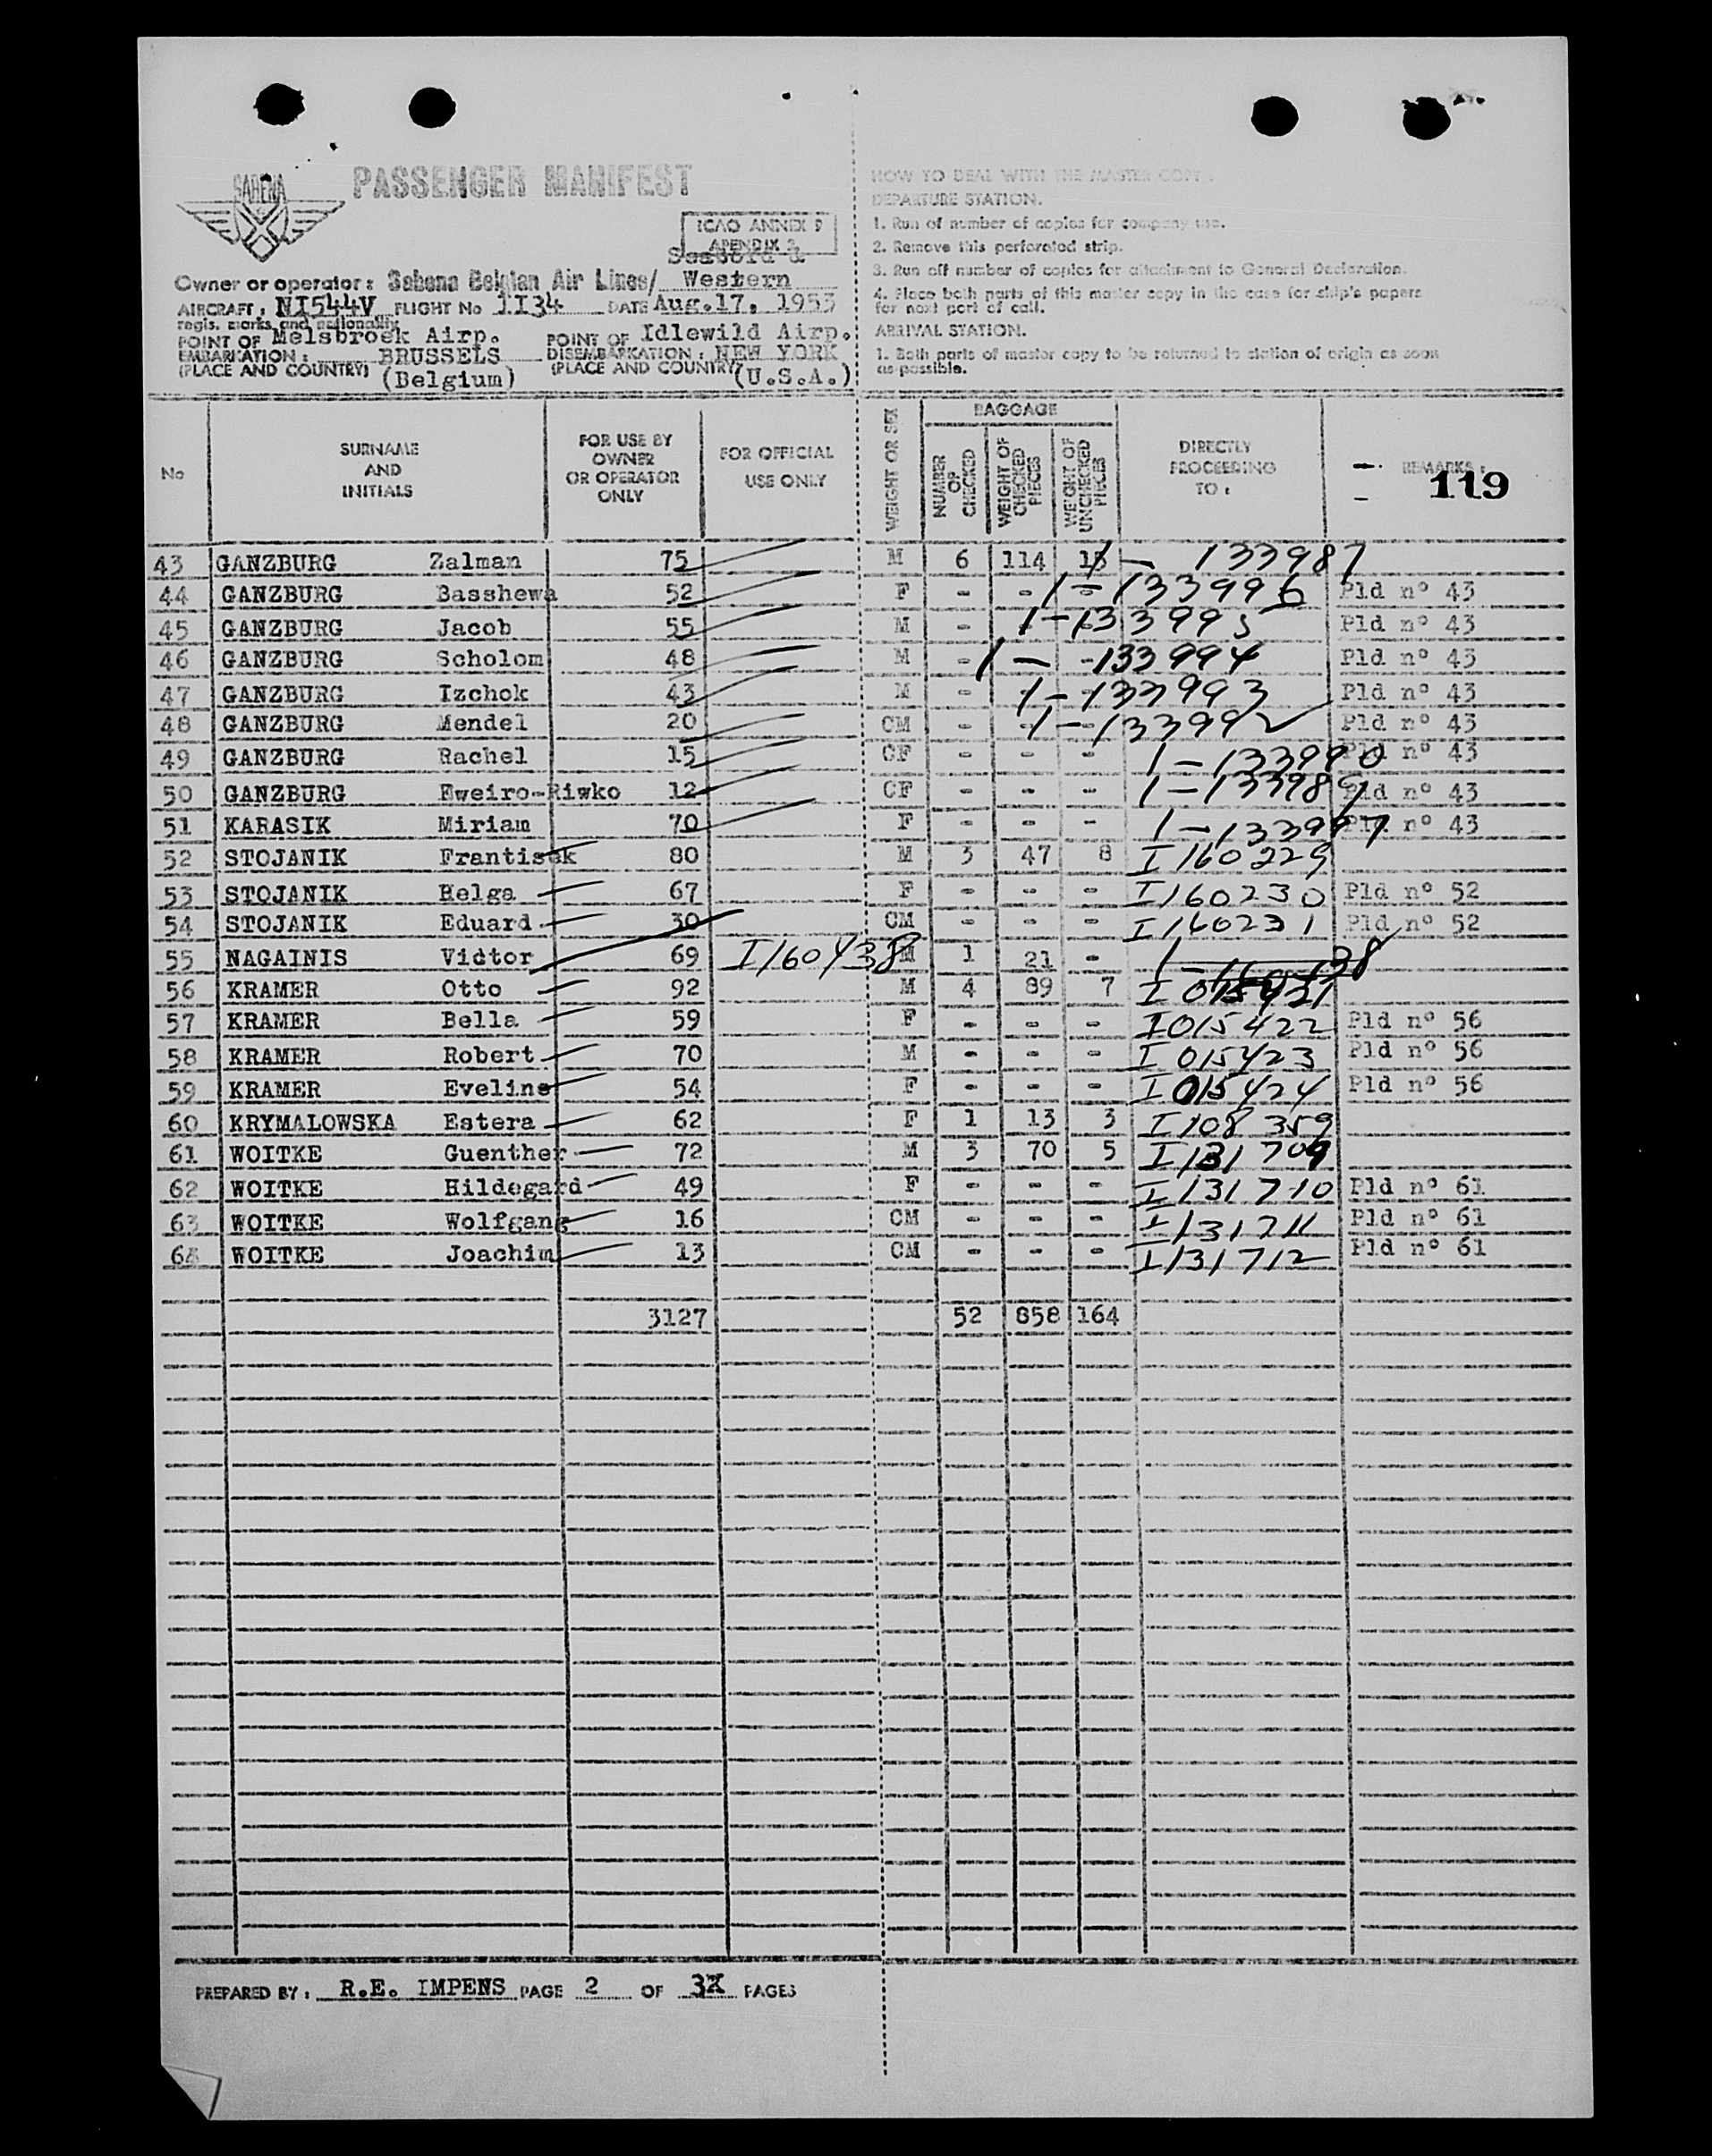 SABENA
PASSENGER MANIFEST
ICAO ANNEX 9
APENDIX 2
Seabord &
Owner or operator: Sabena Belgian Air Lines/ Western
AIRCRAFT: NI544V FLIGHT No II34 DATE Aug.17, 1953
regis. marks and nationality
POINT OF Melsbroek Airp. POINT OF Idlewild Airp.
EMBARKATION: BRUSSELS DISEMBARKATION: NEW YORK
(PLACE AND COUNTRY) (Belgium) (PLACE AND COUNTRY) (U.S.A.)
HOW TO DEAL WITH THE MASTER COPY.
DEPARTURE STATION.
1. Run of number of copies for company use.
2. Remove this perforated strip.
3. Run off number of copies for attachment to General Declaration.
4. Place both parts of this master copy in the case for ship's papers
for next port of call.
ARRIVAL STATION.
1. Both parts of master copy to be returned to station of origin as soon
as possible.
No SURNAME AND INITIALS FOR USE BY OWNER OR OPERATOR ONLY FOR OFFICIAL USE ONLY WEIGHT OR SEX BAGGAGE NUMBER OF CHECKED WEIGHT OF CHECKED PIECES WEIGHT OF UNCHECKED PIECES DIRECTLY PROCEEDING TO: REMARKS:
119
43 GANZBURG Zalman 75 M 6 114 13 1 - 133987
44 GANZBURG Basshewa 52 F - - - 1-133996 Pld n° 43
45 GANZBURG Jacob 55 M - - - 1-133995 Pld n° 43
46 GANZBURG Scholom 48 M - - - 1-133994 Pld n° 43
47 GANZBURG Izchok 43 M - - - 1-133993 Pld n° 43
48 GANZBURG Mendel 20 CM - - - 1-133992 Pld n° 43
49 GANZBURG Rachel 15 CF - - - 1-133990 Pld n° 43
50 GANZBURG Eweiro-Riwko 12 CF - - - 1-133989 Pld n° 43
51 KARASIK Miriam 70 F - - - 1-133997 Pld n° 43
52 STOJANIK Frantisek 80 M 3 47 8 I160229
53 STOJANIK Helga 67 F - - - I160230 Pld n° 52
54 STOJANIK Eduard 30 CM - - - I160231 Pld n° 52
55 NAGAINIS Vidtor 69 I160438 M 1 21 -
56 KRAMER Otto 92 M 4 89 7 I 015421
57 KRAMER Bella 59 F - - - I015422 Pld n° 56
58 KRAMER Robert 70 M - - - I 015423 Pld n° 56
59 KRAMER Eveline 54 F - - - I 015424 Pld n° 56
60 KRYMALOWSKA Estera 62 F 1 13 3 I108359
61 WOITKE Guenther 72 M 3 70 5 I131709
62 WOITKE Hildegard 49 F - - - I131710 Pld n° 61
63 WOITKE Wolfgang 16 CM - - - I131711 Pld n° 61
64 WOITKE Joachim 13 CM - - - I131712 Pld n° 61
3127 52 858 164
PREPARED BY: R.E. IMPENS PAGE 2 OF 3 PAGES